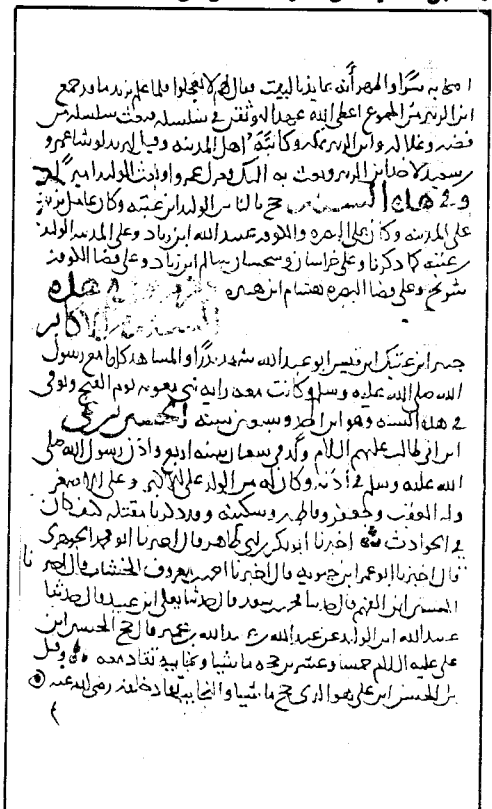 به سرا والمهر أنه عايذ بالبيت وقال لهم لا تعجلوا فلما علم يزيد ما قد جمع
ابن الزبير من الجموع اعطى الله عهدا ليوثقن في سلسله فبعث سلسله من
فضه وابن الزبير بمكه وكاتبه اهل المدينه وقيل ليزيد لو شا عمرو
بن سعيد لاخذ ابن الزبير وبعث به اليك فعزل عمرو الوليد
وفي هذه السنه حج بالناس الوليد ابن عتبه وكان عامل يزيد
على المدينه وكان على البصره والكوفه عبيد الله ابن زياد وعلى المدينه الوليد
بن عتبه كما ذكرنا وعلى خراسان وسجستان سلم ابن زياد وعلى قضا الكوفه
شريح وعلى قضا البصره هشام ابن هبيره هذه
السنه من الاكابر
جبر ابن عتيك ابن قيس ابو عبد الله شهد بدرا والمشاهد كلها مع رسول
الله صلى الله عليه وسلم وكانت معه رايه بني معويه يوم الفتح وتوفي
في هذه السنه وهو ابن احد وسبعين سنه الحسين بن علي
ابن ابي طالب عليهم السلام ولد في شعبان سنه اربع واذن رسول الله صلى
الله عليه وسلم في أذنه وكان له من الولد علي الاكبر وعلي الاصغر
وله العقب وجعفر وفاطمه وسكينه وقد ذكرنا مقتله كيف كان
في الحوادث اخبرنا ابو بكر بن ابي طاهر قال اخبرنا ابو محمد الجوهري
قال اخبرنا ابو عمر ابن حيويه قال اخبرنا احمد بن معروف الخشاب قال اخبرنا
الحسين ابن الفهم قال حدثنا محمد بن سعد قال حدثنا يعلى ابن عبيد قال حدثنا
عبيد الله ابن الوليد عن عبد الله بن عبيد الله بن عمير قال حج الحسين ابن
علي عليه السلام خمسا وعشرين حجه ماشيا ونجايبه تقاد معه وقيل
بل الحسن ابن علي هو الذي حج ماشيا والنجايب تقاد خلفه رضي الله عنه